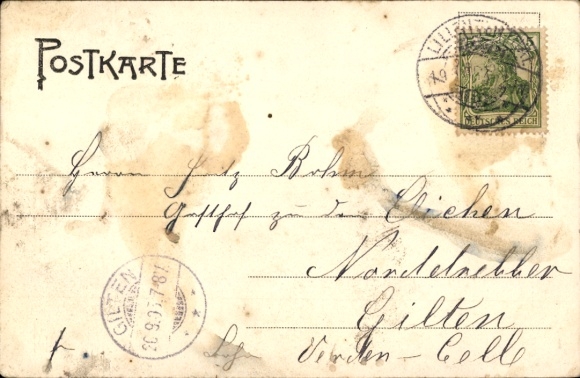 POSTKARTE
LILIENTHAL
DEUTSCHES REICH
Herrn Fritz Bohm
Gasthof zu den Eichen
Norddrebber
Gilten
Verden-Celle
GILTEN
7-8V